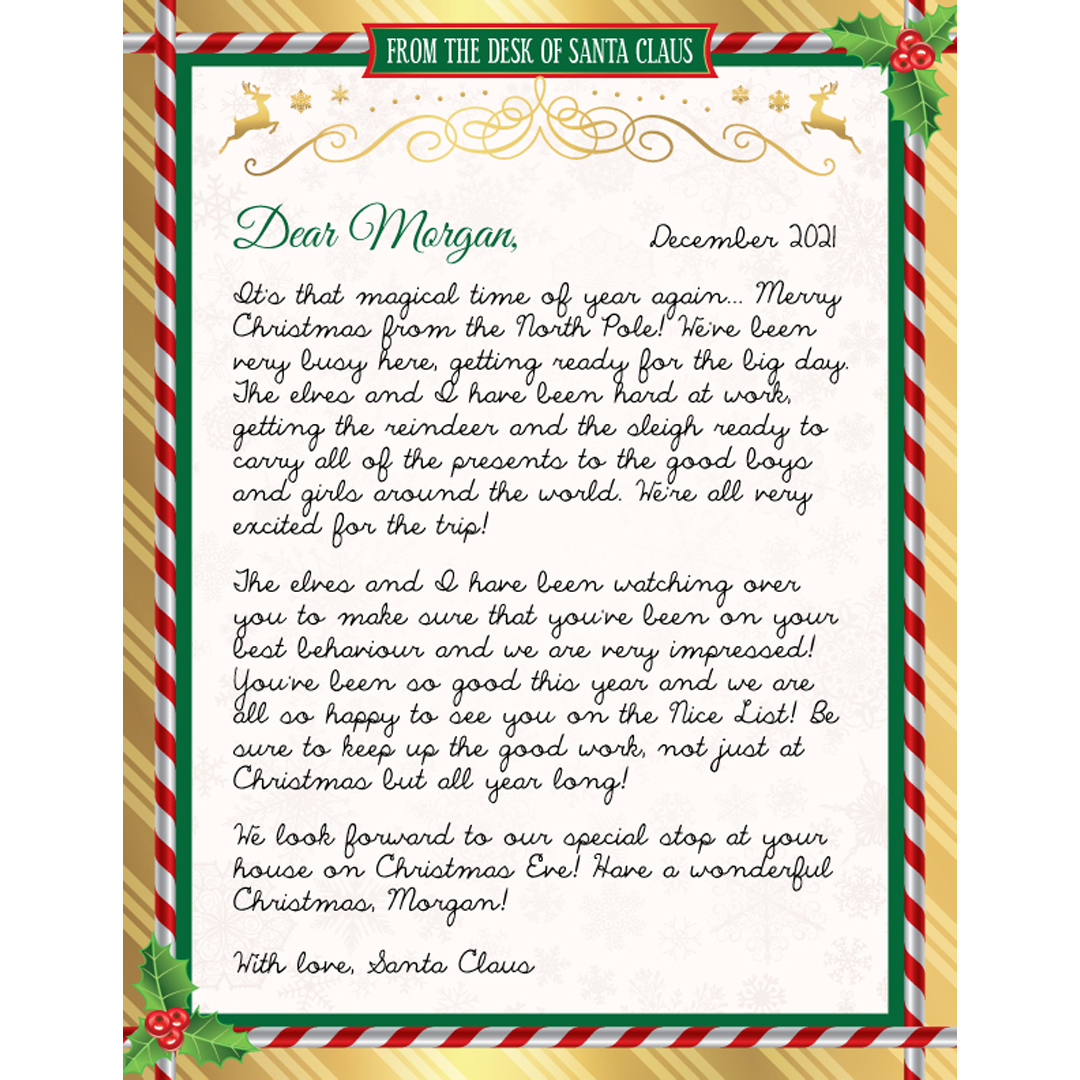 FROM THE DESK OF SANTA CLAUS
Dear Morgan,
December 2021
It's that magical time of year again... Merry
Christmas from the North Pole! We've been
very busy here, getting ready for the big day.
The elves and I have been hard at work,
getting the reindeer and the sleigh ready to
carry all of the presents to the good boys
and girls around the world. We're all very
excited for the trip!
The elves and I have been watching over
you to make sure that you've been on your
best behaviour and we are very impressed!
You've been so good this year and we are
all so happy to see you on the Nice List! Be
sure to keep up the good work, not just at
Christmas but all year long!
We look forward to our special stop at your
house on Christmas Eve! Have a wonderful
Christmas, Morgan!
With love, Santa Claus